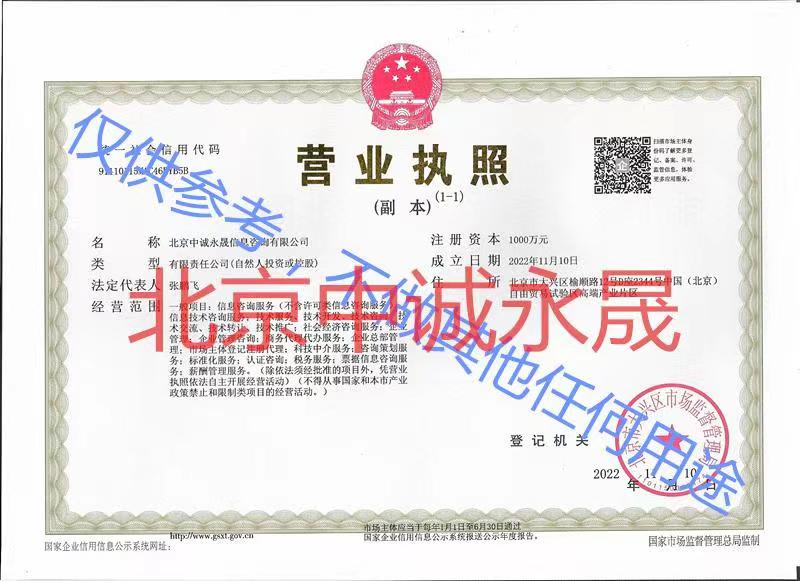 统一社会信用代码
营业执照
(副 本)(1-1)
扫描市场主体身
份码了解更多登
记、备案、许可、
监管信息，体验
更多应用服务。
名 称 北京中诚永晟信息咨询有限公司
类 型 有限责任公司(自然人投资或控股)
法定代表人 张鹏飞
经营范围 一般项目：信息咨询服务（不含许可类信息咨询服务）；
信息技术咨询服务；技术服务、技术开发、技术咨询、技
术交流、技术转让、技术推广；社会经济咨询服务；企业
管理；企业管理咨询；商务代理代办服务；企业总部管
理；市场主体登记注册代理；科技中介服务；咨询策划服
务；标准化服务；认证咨询；税务服务；票据信息咨询服
务；薪酬管理服务。（除依法须经批准的项目外，凭营业
执照依法自主开展经营活动）（不得从事国家和本市产业
政策禁止和限制类项目的经营活动。）
注册资本 1000万元
成立日期 2022年11月10日
住 所 北京市大兴区榆顺路12号D座2344号中国（北京）
自由贸易试验区高端产业片区
北京中诚永晟
仅供参考，不做其他任何用途
登记机关
北京市大兴区市场监督管理局
2022 年 11 月 10 日
国家企业信用信息公示系统网址：http://www.gsxt.gov.cn
市场主体应当于每年1月1日至6月30日通过
国家企业信用信息公示系统报送公示年度报告。
国家市场监督管理总局监制